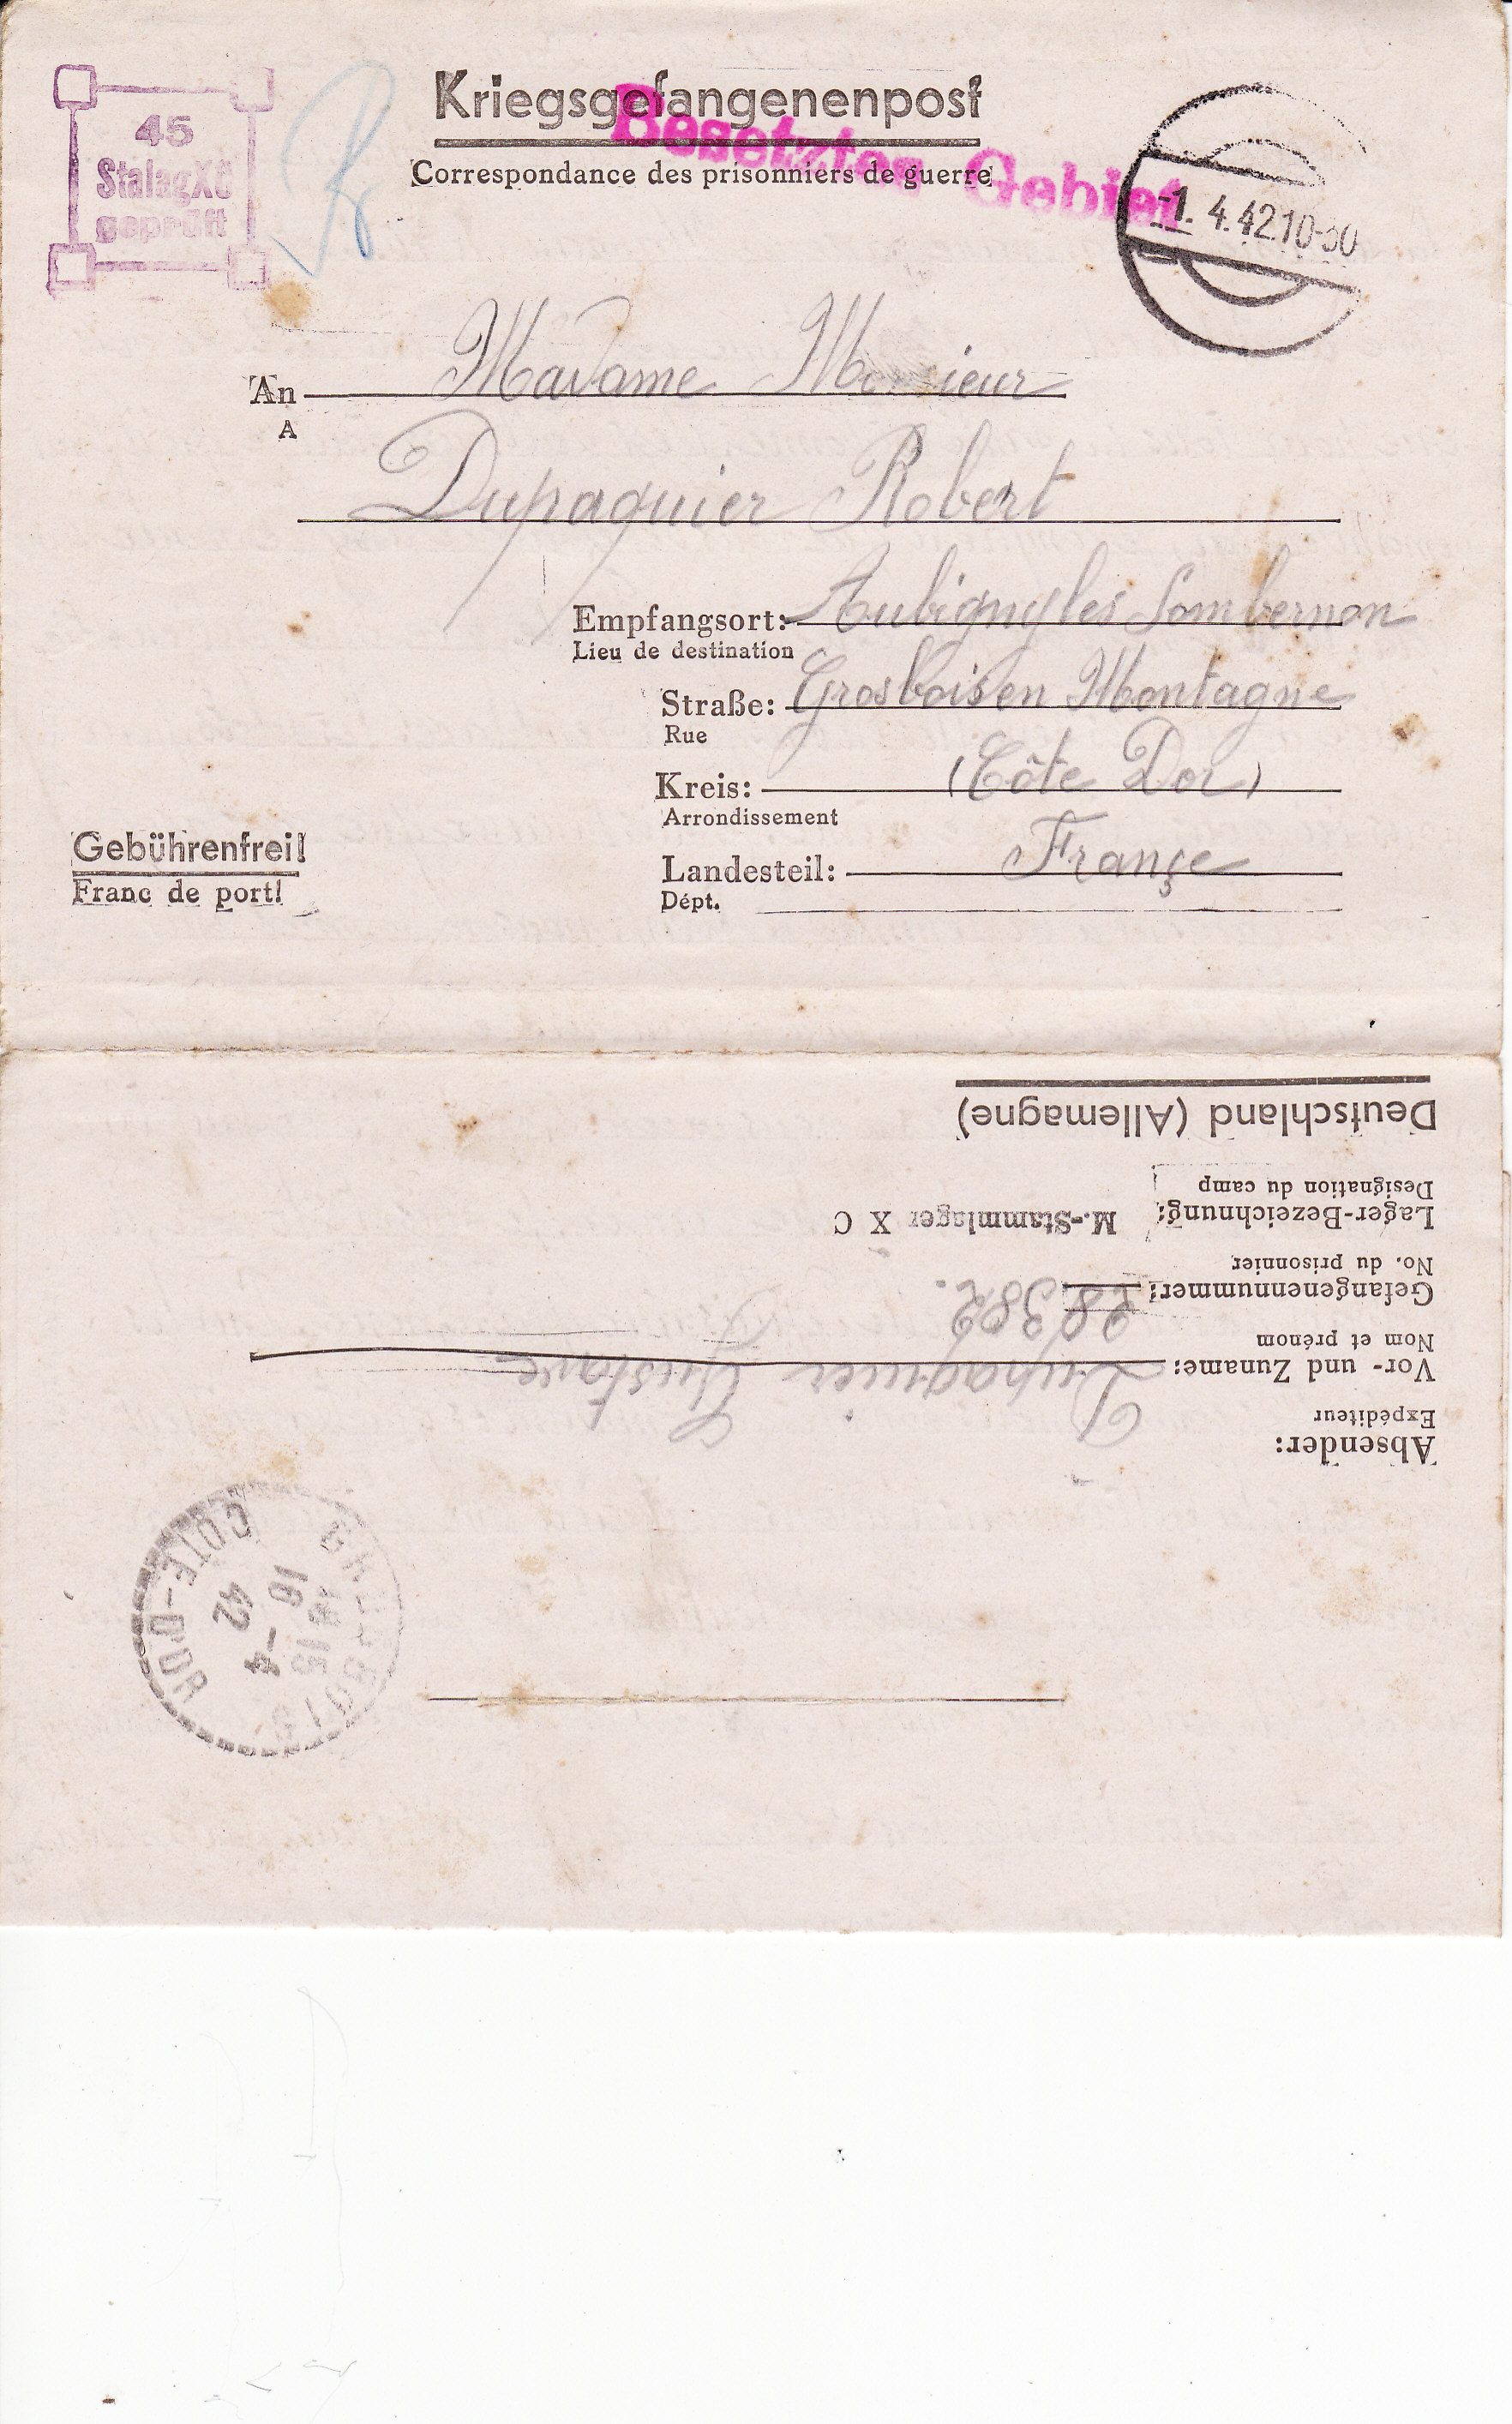 Kriegsgefangenenpost
Correspondance des prisonniers de guerre
Besetztes Gebiet
45
Stalag XC
geprüft
-1. 4.42.10-
An Madame Monsieur
A
Dupaquier Robert
Empfangsort: Aubigny les Sombernon
Lieu de destination
Straße: Grosbois en Montagne
Rue
Kreis: (Côte Dor)
Arrondissement
Gebührenfrei!
Franc de port!
Landesteil: Françe
Dépt.
Absender:
Expéditeur
Vor- und Zuname: Dupaquier Gustave
Nom et prénom
Gefangenennummer: 28382.
No. du prisonnier
Lager-Bezeichnung: M.-Stammlager X C
Designation du camp
Deutschland (Allemagne)
15
10 -4
42
COTE-D'OR